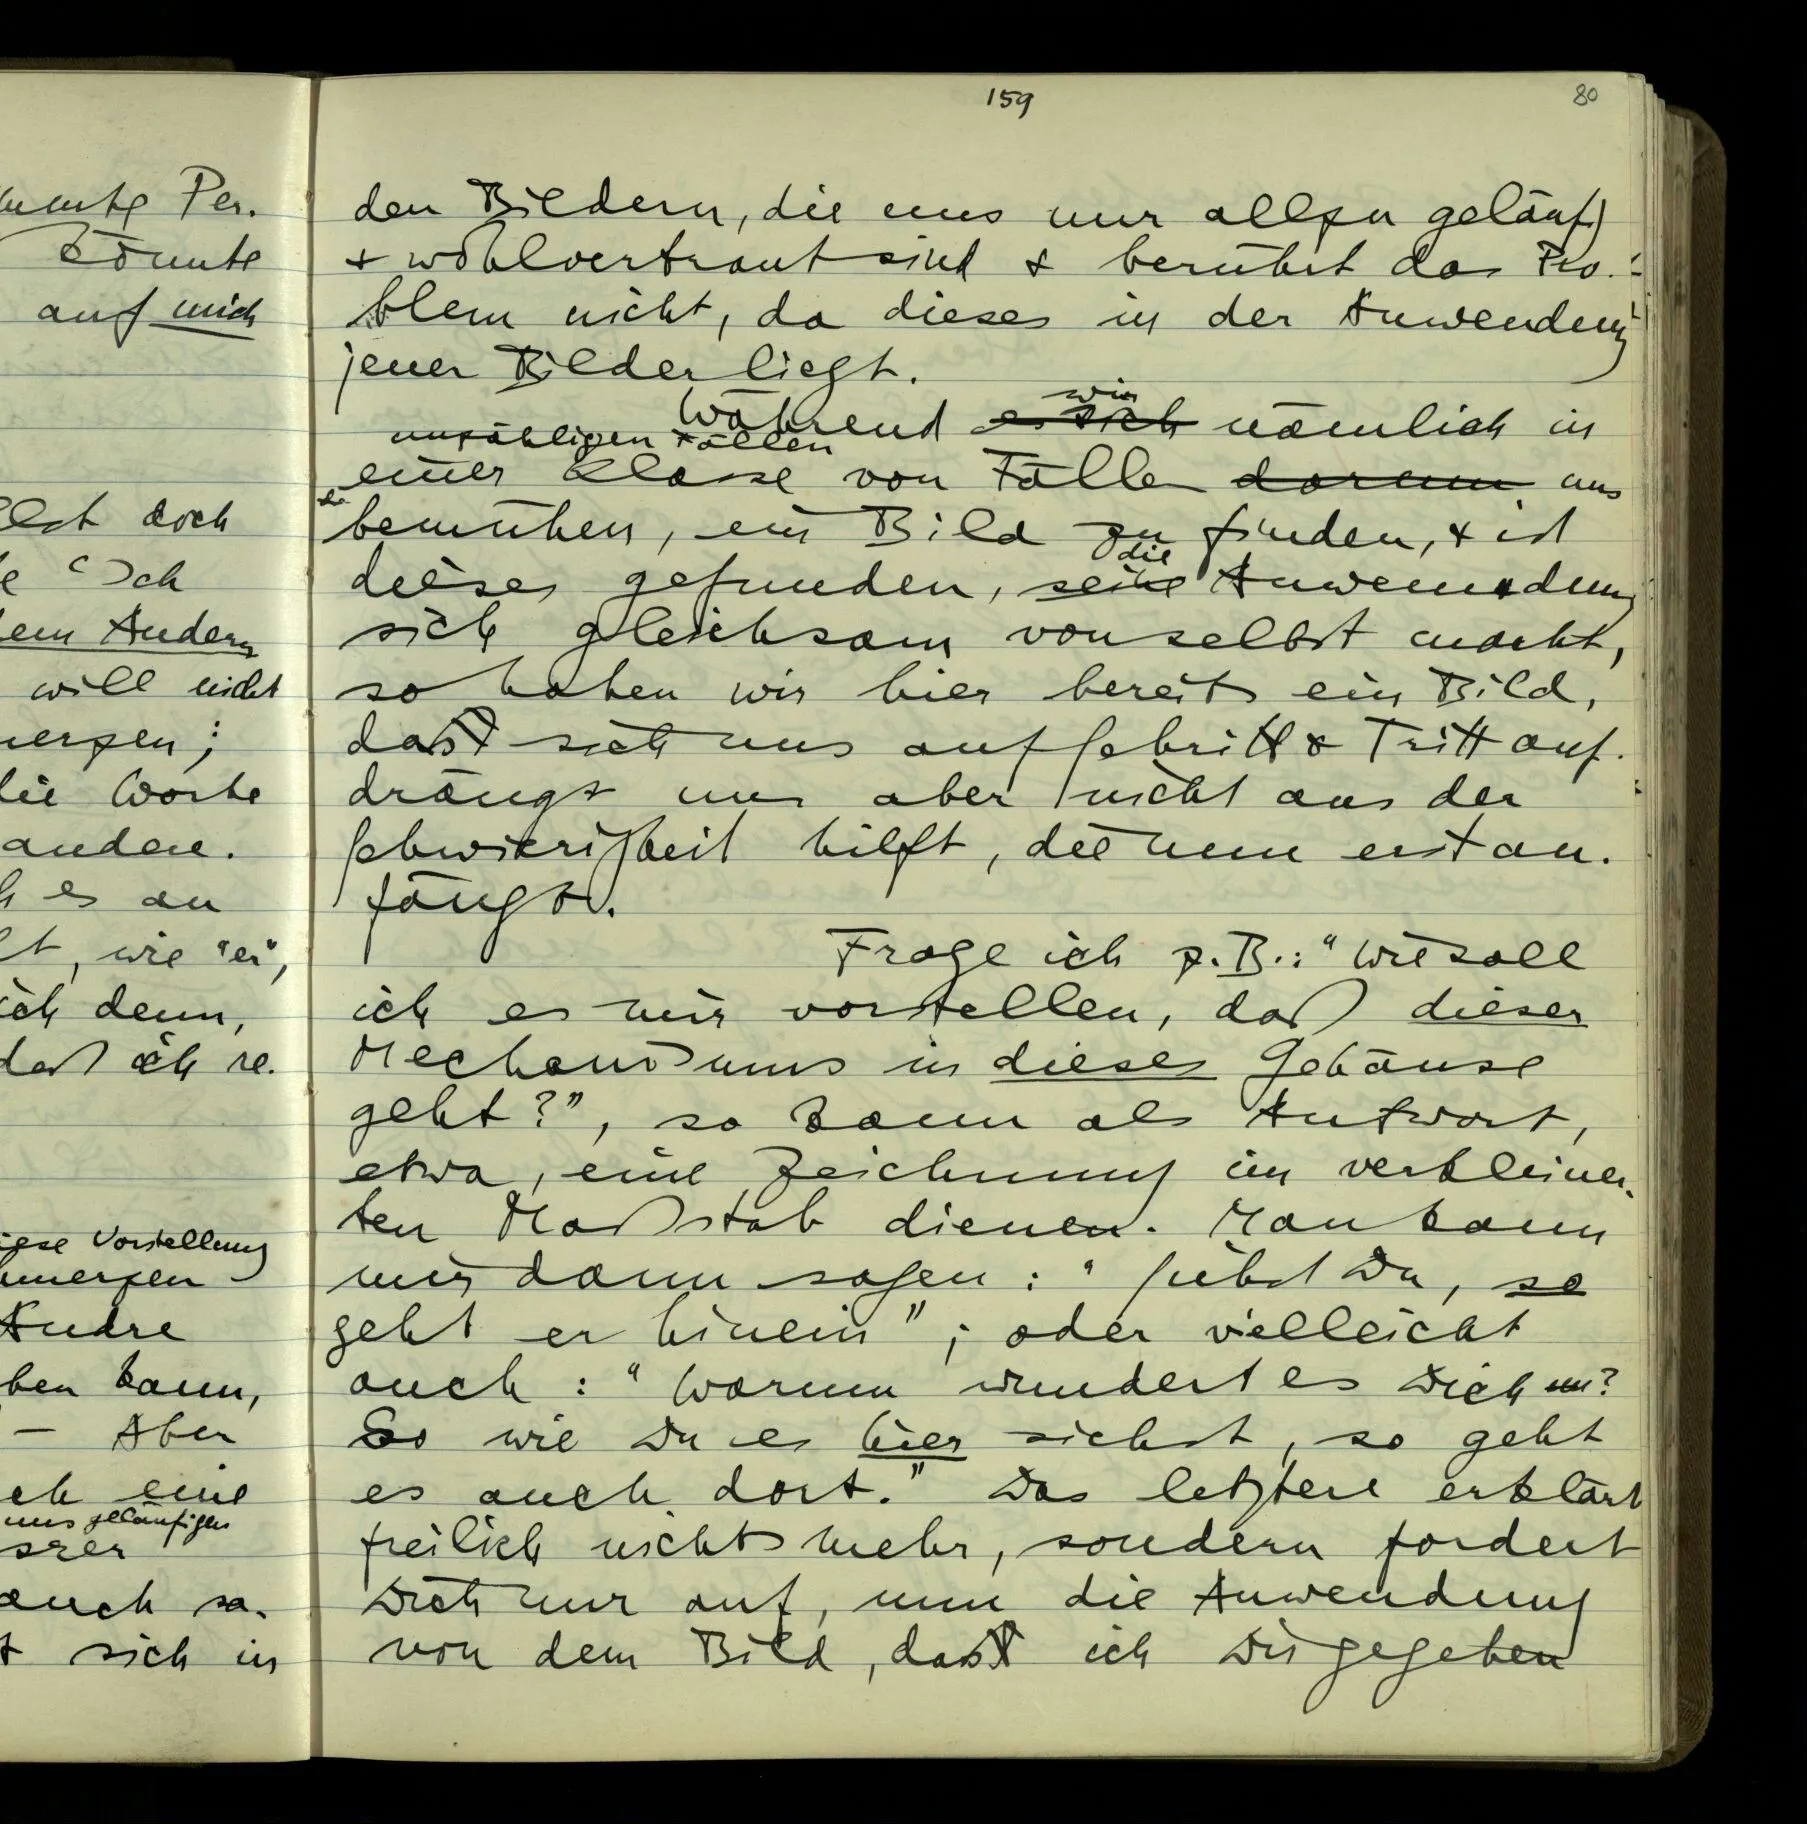 159
80
Per.
könnte
auf mich
doch
Ich
dem Andern
will nicht
die Worte
andere.
es an
wie "er",
ich denn,
daß ich re-
diese Vorstellung
Andre
kann,
— Aber
eine
uns geläufigen
auch sa-
sich in
den Bildern, die uns nur allzu geläufig
& wohlvertraut sind & berührt das Pro-
blem nicht, da dieses in der Anwendung
jener Bilder liegt.
wir
Während es sich nämlich in
unzähligen Fällen
einer Klasse von Fällen darum uns
bemühen, ein Bild zu finden, & ist
die
dieses gefunden, seine Anwendung
sich gleichsam von selbst macht,
so haben wir hier bereits ein Bild,
daß sich uns auf Schritt & Tritt auf-
drängt uns aber nicht aus der
Schwierigkeit hilft, die nun erst an-
fängt.
Frage ich z.B.: "Wie soll
ich es mir vorstellen, daß dieser
Mechanismus in dieses Gehäuse
geht?", so kann als Antwort,
etwa, eine Zeichnung im verkleiner-
ten Maßstab dienen. Man kann
mir dann sagen: "Siehst Du, so
geht er hinein"; oder vielleicht
auch: "Warum wundert es Dich?
So wie Du es hier siehst, so geht
es auch dort." Das letztere erklärt
freilich nichts mehr, sondern fordert
Dich nur auf, nun die Anwendung
von dem Bild, daß ich Dir gegeben